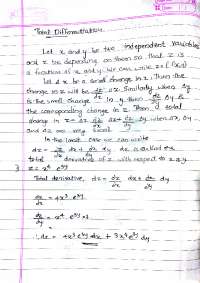 Total Differentiation
Let x and y be two independent variables
and z be depending on them so that z is
a function of x and y. We can write z = f(x,y)
Let δx be a small change in x. Then the
change in z will be ∂z/∂x δx. Similarly when δy
is the small change in y then ∂z/∂y δy is
the corresponding change in z. Then total
change in z = ∂z/∂x δx + ∂z/∂y δy when δx, δy
and δz are very small
In the limit case we can write
dz = ∂z/∂x dx + ∂z/∂y dy dz is called
total derivative of z with respect to x & y
z = x⁴ e³ʸ
Total derivative, dz = ∂z/∂x dx + ∂z/∂y dy
∂z/∂x = 4x³ e³ʸ
∂z/∂y = x⁴ . e³ʸ × 3
∴ dz = 4x³ e³ʸ dx + 3x⁴ e³ʸ dy